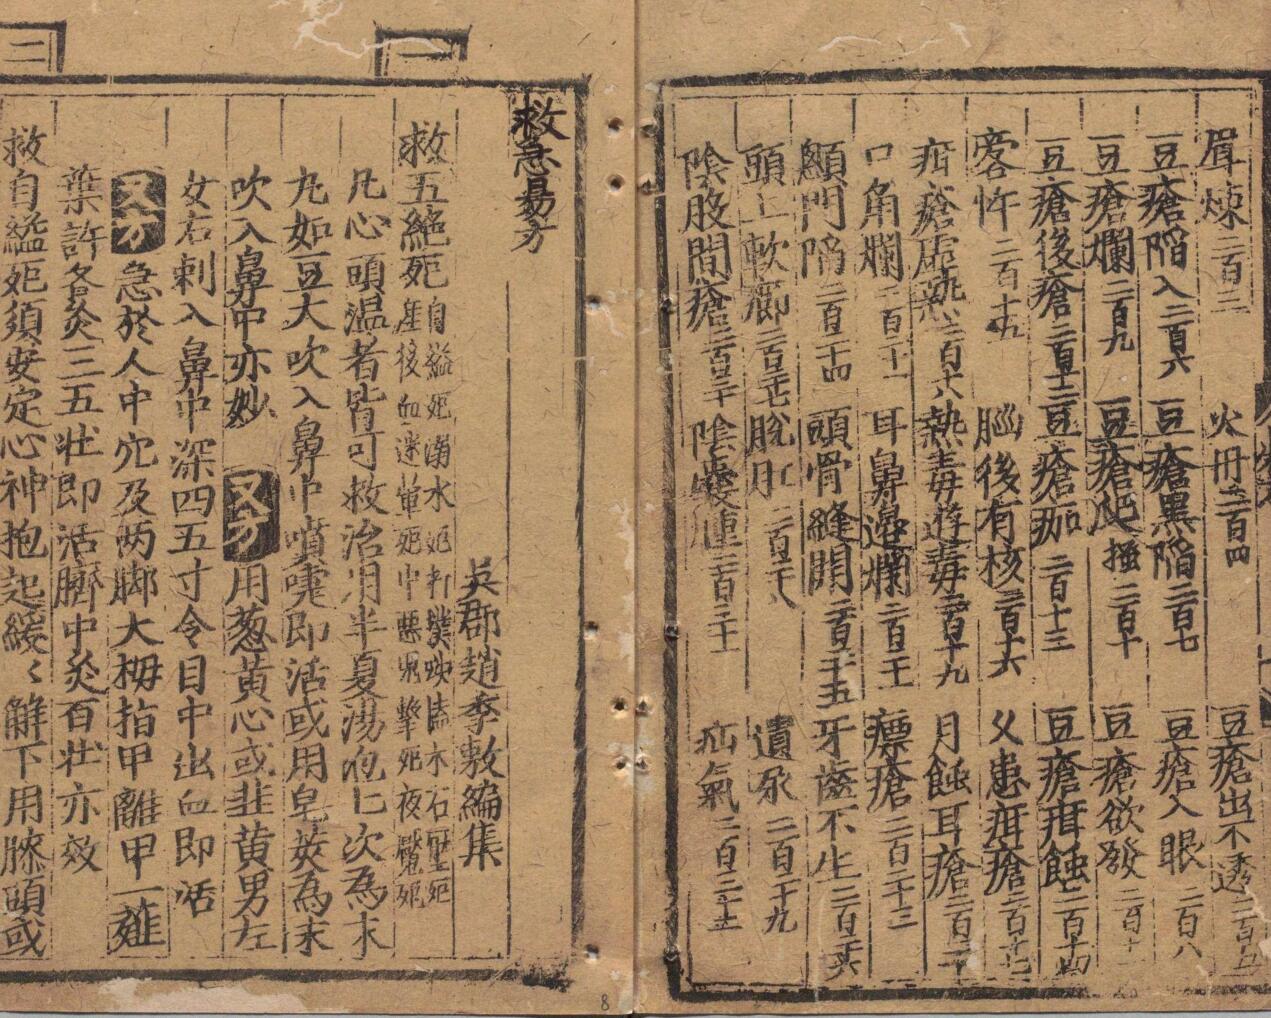 眉煉二百三 火丹二百四 豆瘡出不透二百五
豆瘡陷入二百六 豆瘡黑陷二百七 豆瘡入眼二百八
豆瘡爛二百九 豆瘡 搔二百十 豆瘡欲發二百十一
豆瘡後瘡二百十二 豆瘡痂二百十三 豆瘡疳蝕二百十四
客忤二百十五 腦後有核二百十六 父患疳瘡二百十七
疳瘡虛熱二百十八 熱毒遊毒二百十九 月蝕耳瘡二百二十
口角爛二百二十一 耳鼻邊爛二百二十二 瘭瘡二百二十三
顖門陷二百二十四 頭骨縫開二百二十五 牙齒不生二百二十六
頭上軟癤二百二十七 脫肛二百二十八 遺尿二百二十九
陰股間瘡二百三十 陰 腫二百三十一 疝氣二百三十二
救急易方
吳郡趙季敷編集
一
救五絕死 自縊死 溺水死 打撲 木石壓死
產後血迷暈死 中惡鬼擊死 夜魘死
凡心頭温者皆可救治用半夏湯泡七次為末
丸如豆大吹入鼻中噴嚏即活或用皂莢為末
吹入鼻中亦妙 又方 用葱黃心或韭黃男左
女右剌入鼻中深四五寸令目中出血即活
又方 急於人中穴及兩脚大拇指甲離甲一薤
葉許各灸三五壯即活臍中灸百壯亦效
二
救自縊死須安定心神抱起緩〻解下用膝頭或
8